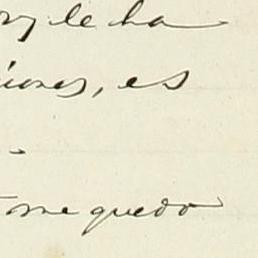 y le ha
iones, es
me quedo